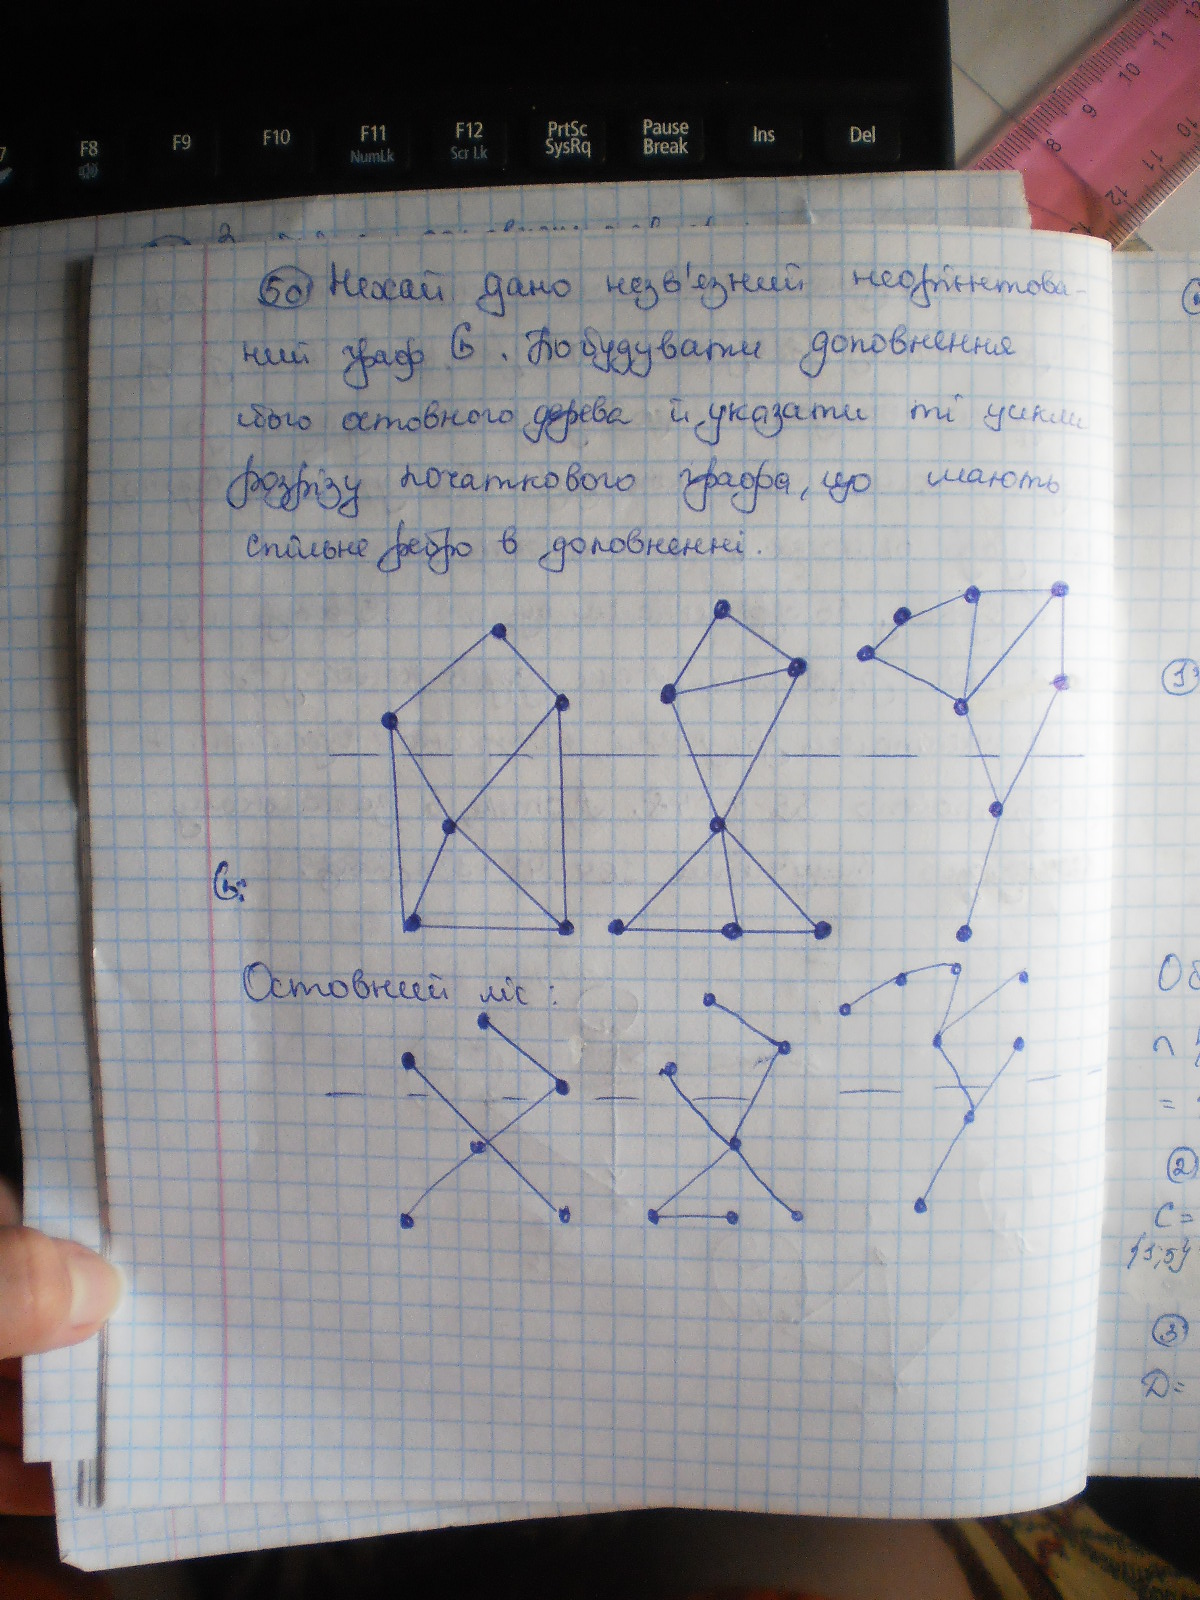 F8 F9 F10 F11 F12 PrtSc Pause Ins Del
NumLk Scr Lk SysRq Break
8 9 10 11 12
10 11 12
50 Нехай дано незв'язний неорієнтова-
ний граф G. Побудувати доповнення
його остовного дерева й указати ті цикли
розрізу початкового графа, що мають
спільне ребро в доповненні.
G:
Остовний ліс:
1
Об
2
C=
{1,5}
3
D=